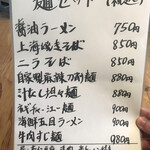 麺セット
醤油ラーメン 750円
上海焼きそば 850円
ニラそば 850円
自家製麻辣刀削麺 880円
汁なし担々麺 880円
ネギチャーシュー麺 900円
海鮮五目ラーメン 900円
牛肉すじ麺 980円